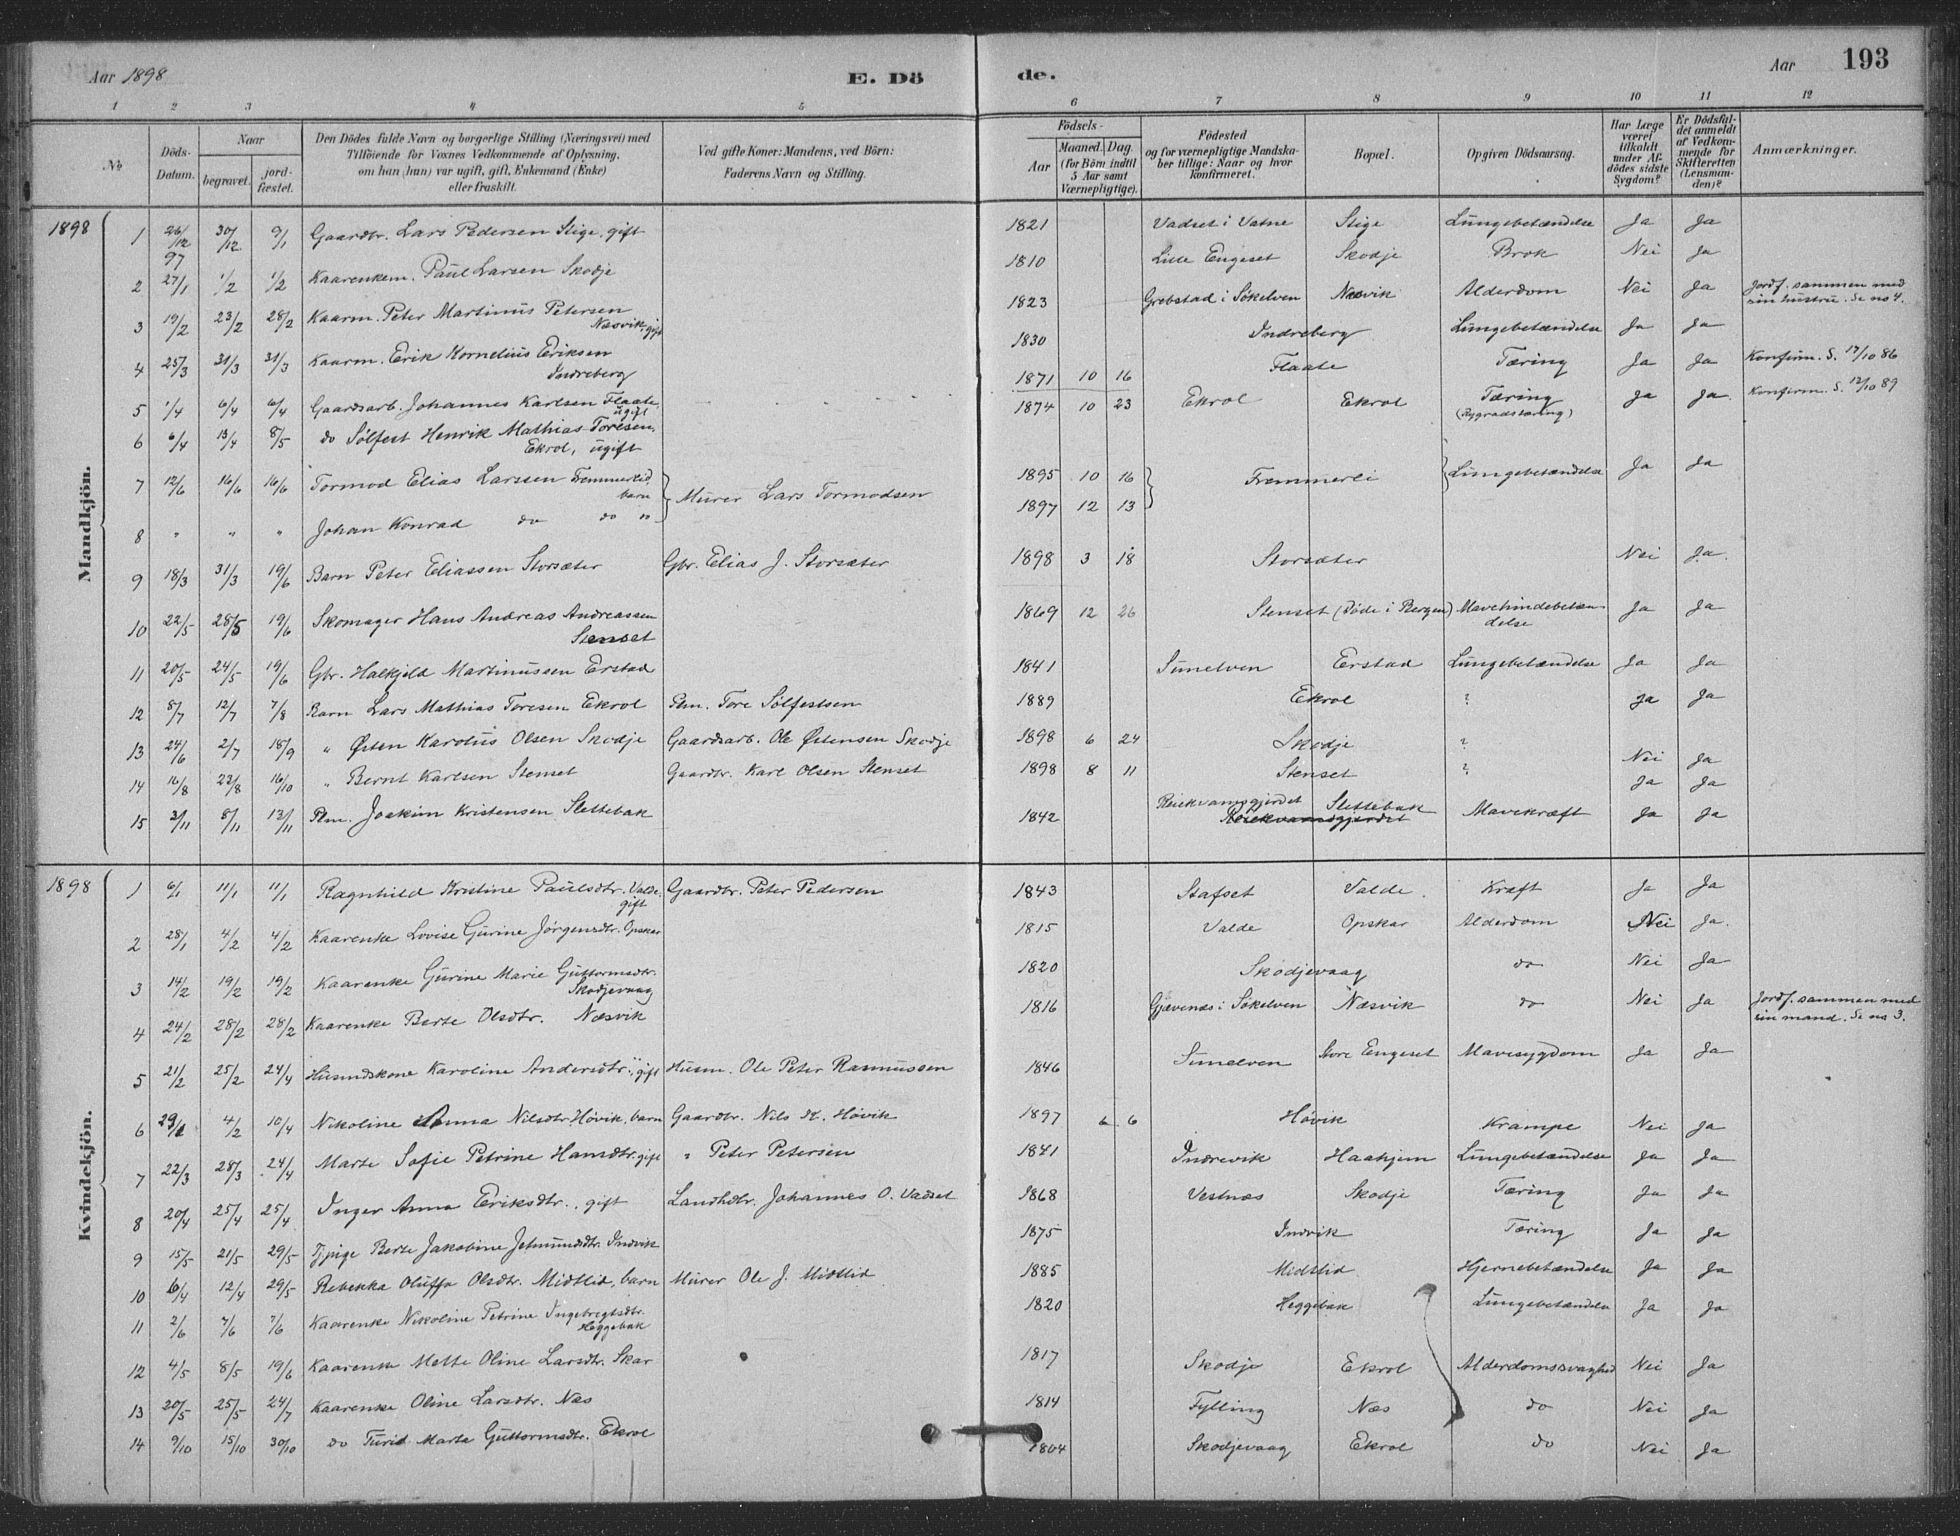 Aar 1898
E. Dö
de.
Aar
193
1 2 3 4 5 6 7 8 9 10 11 12
No
Döds-Datum.
Naar
begravet.
jord-fæstet.
Den Dödes fulde Navn og borgerlige Stilling (Næringsvei) med
Tilföiende for Voxnes Vedkommende af Oplysning,
om han (hun) var ugift, gift, Enkemand (Enke)
eller fraskilt.
Ved gifte Koner: Mandens, ved Börn:
Faderens Navn og Stilling.
Födsels-
Aar
Maaned. Dag.
(for Börn indtil
5 Aar samt
Værnepligtige).
Födested
og for værnepligtige Mandska-
ber tillige: Naar og hvor
konfirmeret.
Bopæl.
Opgiven Dödsaarsag.
Har Læge
været
tilkaldt
under Af-
dödes sidste
Sygdom?
Er Dödsfal-
det anmeldt
af Vedkom-
mende for
Skifteretten
(Lensman-
den)?
Anmærkninger.
Mandkjön.
1898 1 26/12 97 30/12 9/1 Gaardbr. Lars Pedersen Stige, gift 1821 Vadset i Vatne Stige Lungebetændelse Ja Ja
2 27/1 1/2 1/2 Kaarenkem. Paul Larsen Skodje 1810 Lille Engeset Skodje Brok Nei Ja
3 19/2 23/2 28/2 Kaarm. Peter Martinus Petersen Næsvik, gift 1823 Grebstad i Søkelven Næsvik Alderdom Nei Ja Jordf. sammen med sin hustru. Se no 4.
4 25/3 31/3 31/3 Kaarm. Erik Kornelius Eriksen Indreberg 1830 Indreberg Lungebetændelse Ja Ja
5 1/4 6/4 6/4 Gaardsarb. Johannes Karlsen Flaate, ugift 1871 10 16 Flaate Tæring Ja Ja Konfirm. S. 17/10 86
6 6/4 13/4 8/5 do Sølfest Henrik Mathias Toresen, Ekrol, ugift 1874 10 23 Ekrol Ekrol Tæring (Rygradstæring) Ja Ja. Konfirm. S. 12/10 89
7 12/6 16/6 16/6 Tormod Elias Larssen Fremmerlid, barn Murer Lars Tormodsen 1895 10 16 Fremmerli Lungebetændelse Ja Ja
8 " " " Johan Konrad do do " 1897 12 13
9 18/3 31/3 19/6 Barn Peter Eliassen Storsæter Gbr. Elias J. Storsæter 1898 3 18 Storsæter Nei Ja.
10 22/5 28/5 19/6 Skomager Hans Andreas Andreassen Stenset 1869 12 26 Stenset (Døde i Bergen) Mavehindebetændelse Ja Ja
11 20/5 24/5 19/6 Gbr. Halkjeld Martinussen Erstad 1841 Sunelven Erstad Lungebetændelse Ja Ja
12 8/7 12/7 7/8 Barn Lars Mathias Toresen Ekrol Plm. Tore Sølfestsen 1889 Ekrol ? Ja Ja
13 24/6 2/7 18/9 " Østen Karolus Olsen Skodje Gaardsarb. Ole Østensen Skodje 1898 6 24 Skodje ? Nei Ja
14 16/8 22/8 16/10 " Bernt Karlsen Stenset Gaardbr. Karl Olsen Stenset 1898 8 11 Stenset ? Ja Ja
15 3/11 8/11 13/11 Plm. Joakim Kristensen Slettebak 1842 Reiekvamsgjerdet Slettebak Reiekvamsgjerdet Mavekræft Ja Ja
Kvindekjön.
1898 1 6/1 11/1 11/1 Ragnhild Kristine Paulsdtr. Valde, gift Gaardbr. Peter Pedersen 1843 Stafset Valde Kræft Ja Ja
2 28/1 4/2 4/2 Kaarenke Lovise Gurine Jørgensdtr. Opskar 1815 Valde Opskar Alderdom Nei Ja.
3 14/2 19/2 19/2 Kaarenke Gurine Marie Guttormsdtr. Skodjevaag 1820 Skodjevaag do Nei Ja
4 24/2 28/2 28/2 Kaarenke Berte Olsdtr. Næsvik 1816 Gjævenes i Søkelven Næsvik do Nei Ja Jordf. sammen med sin mand. Se no 3.
5 21/2 25/2 24/4 Husmdskone Karoline Andersdtr., gift Husm. Ole Peter Rasmussen 1846 Sunelven Store Engeset Mavesygdom Ja Ja
6 29/1 4/2 10/4 Nikoline Anna Nilsdtr Høvik, barn Gaardbr. Nils K. Høvik 1897 6 6 Høvik Krampe Nei Ja
7 22/3 28/3 24/4 Marte Sofie Petrine Hansdtr. gift " Peter Petersen 1841 Indrevik Haahjem Lungebetændelse Ja Ja
8 20/4 25/4 25/4 Inger Anna Eriksdtr., gift Landhdlr. Johannes O. Vadset 1868 Vestnæs Skodje Tæring Ja Ja
9 15/5 21/5 29/5 Tjpige Berte Jakobine Jetmundsdtr. Indvik 1875 Indvik Tæring Ja Ja
10 6/4 12/4 29/5 Rebekka Oluffa Olsdtr. Midtlid, barn Murer Ole J. Midtlid 1885 Midtlid Hjernebetændelse Ja Ja
11 2/6 7/6 7/6 Kaarenke Nikoline Petrine Ingebregtsdtr. Heggebak 1820 Heggebak Lungebetændelse Ja Ja
12 4/5 8/5 19/6 Kaarenke Mette Oline Larsdtr. Skar 1817 Skodje Ekrol Alderdomssvaghed Nei Ja
13 20/5 25/5 24/7 Kaarenke Oline Larsdtr. Næs 1814 Fylling Næs do Nei Ja
14 9/10 15/10 30/10 do Turid Marta Guttormsdtr. Ekrol 1804 Skodjevaag Ekrol do Nei Ja